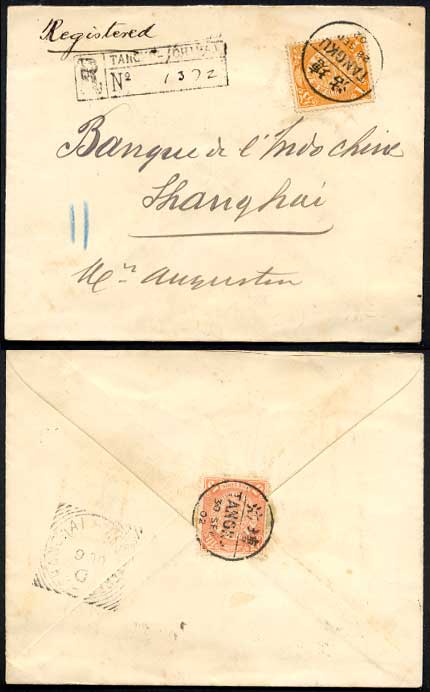 Registered
R TANGKU-(CHINA)
Nº 1372
塘沽
TANGKU
Banque de l'Indo chine
Shanghai
Mr. Augustin
塘沽
TANGKU
30 SEP
02
SHANGHAI